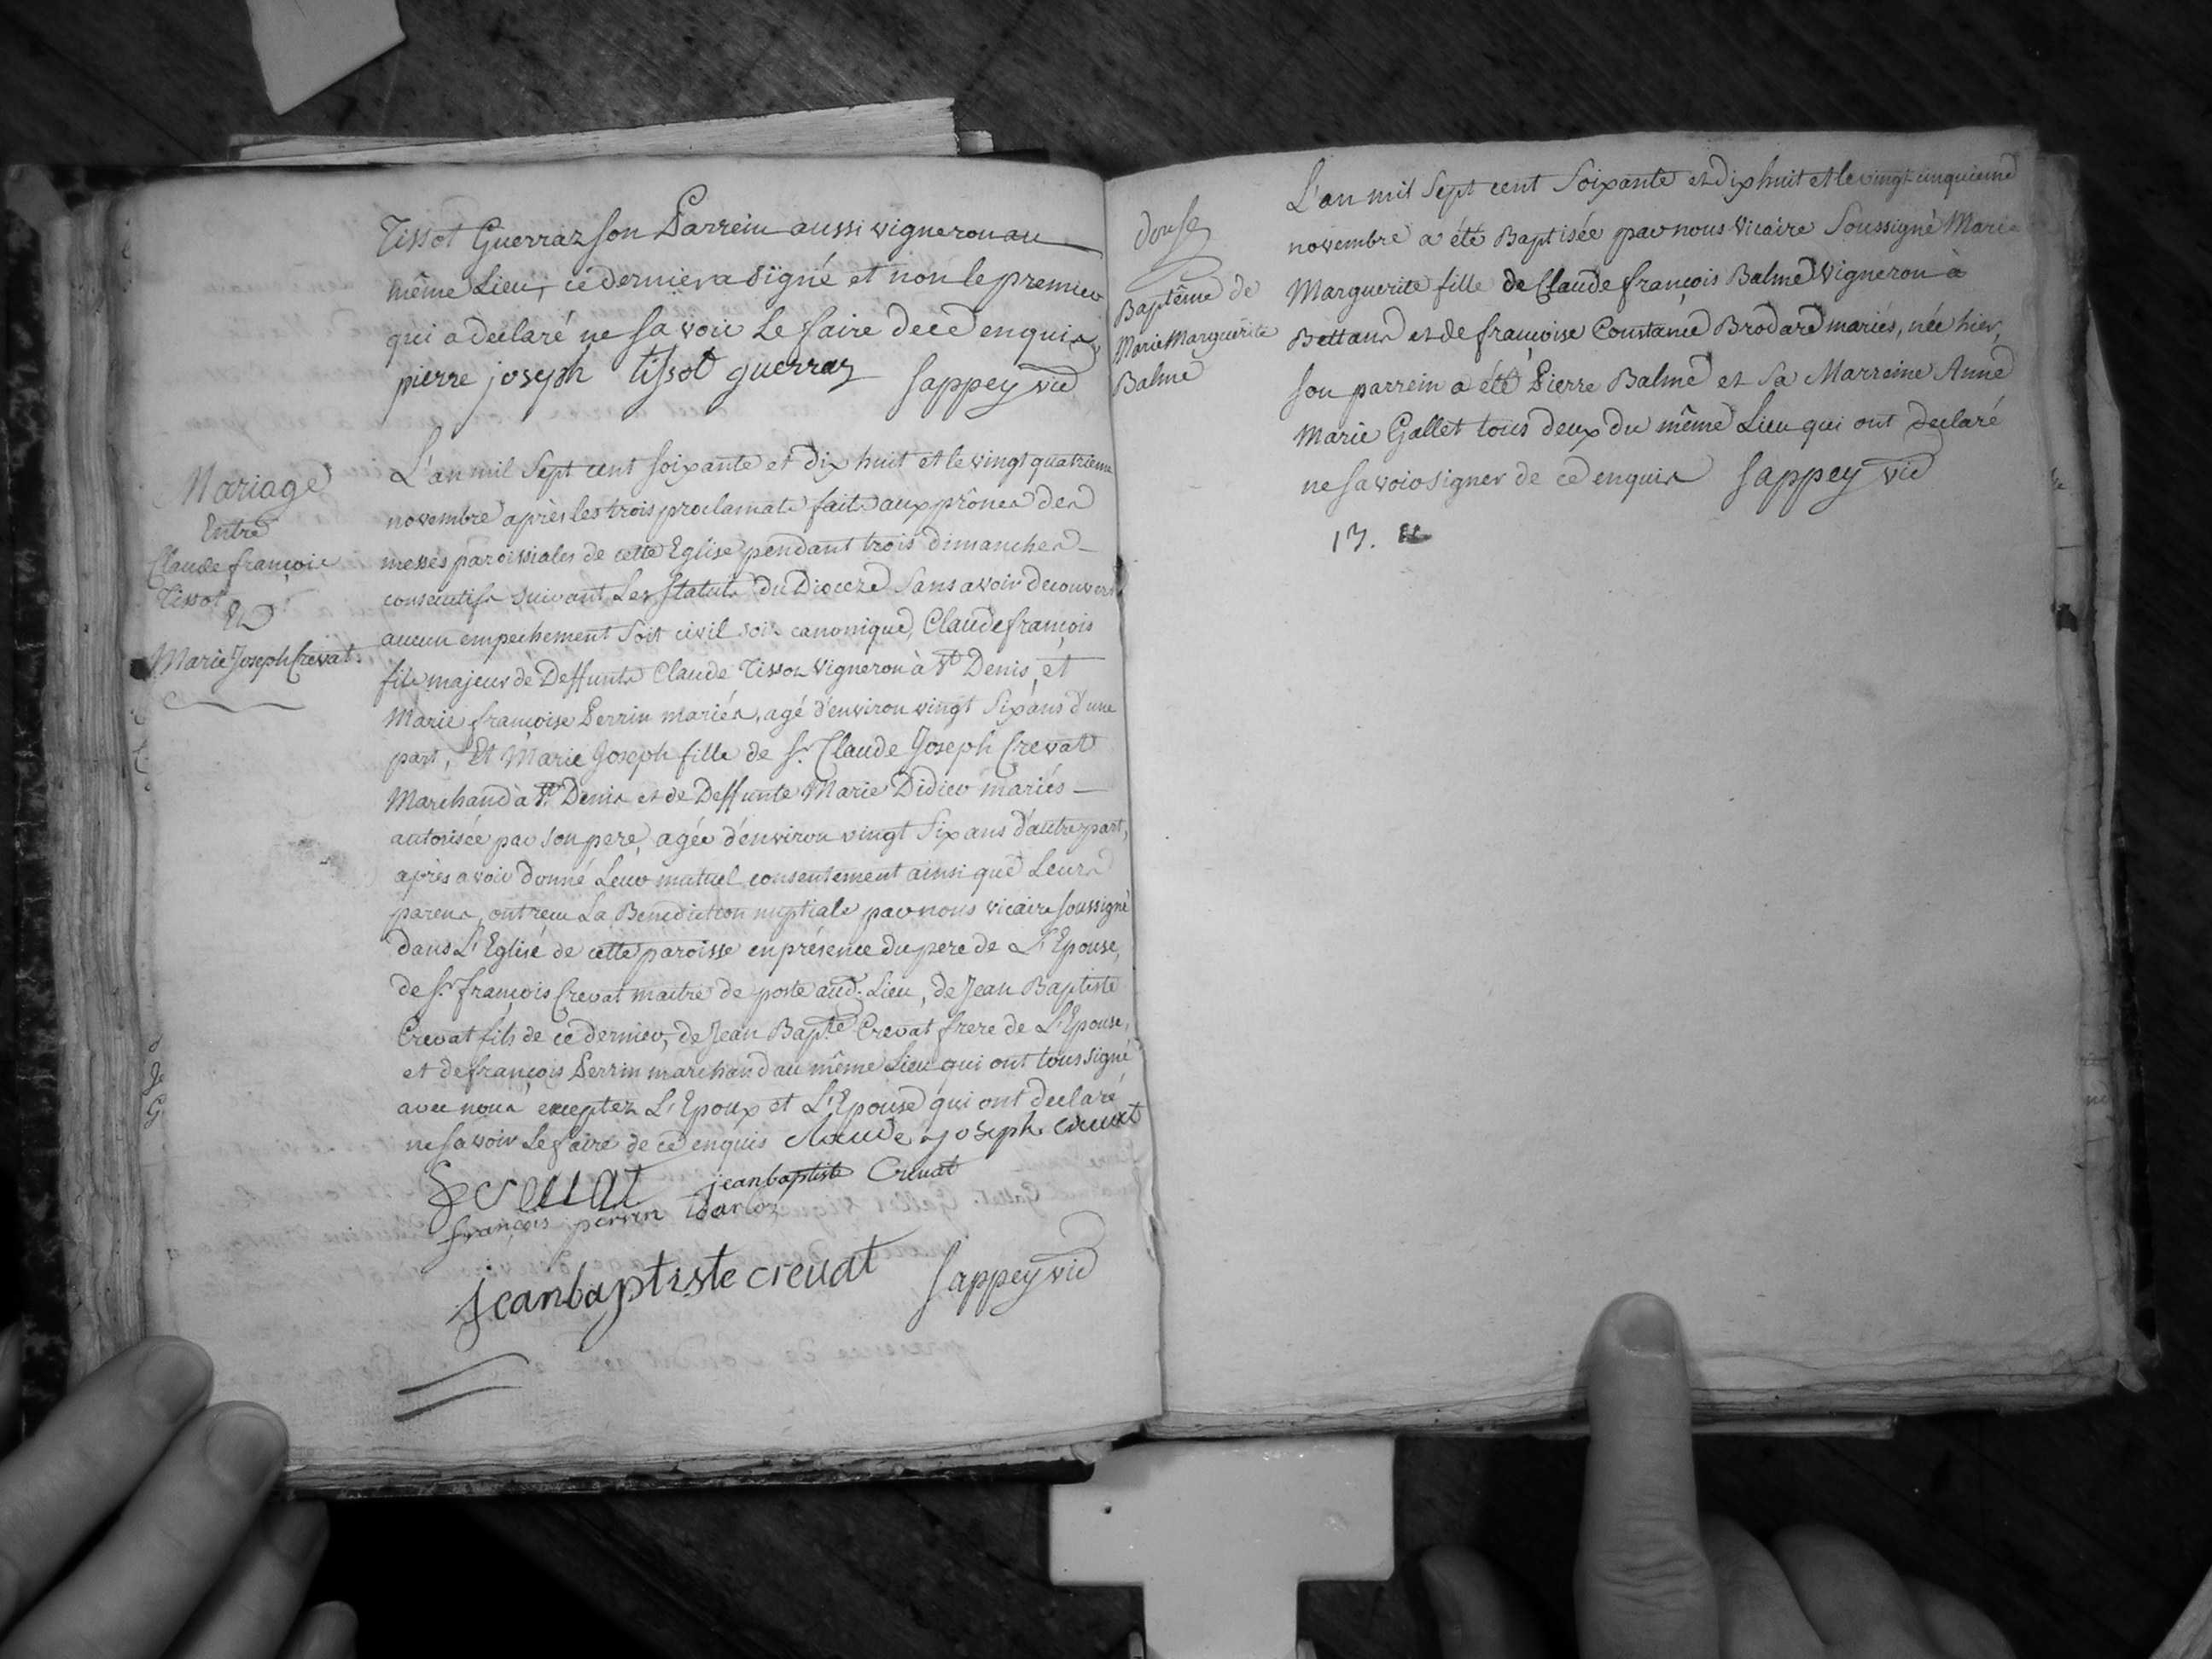 Tissot Guerraz son Parrein aussi vigneron au
même Lieu, ce dernier a signé et non le premier
qui a declaré ne savoir le faire de ce enquis,
pierre joseph tissot guerraz sappey vic
Mariage
Entre
Claude françois
Tissot
Et
Marie Joseph Crevat
L'an mil sept cent soixante et dix huit et le vingt quatrieme
novembre après les trois proclamat.s faits aux prônes des
messes paroissiales de cette Eglise pendant trois dimanches
consecutifs suivant Les statuts du Dioceze sans avoir decouvert
aucun empechement soit civil soit canonique, Claude françois
fils majeur de Deffunts Claude Tissot vigneron à St Denis, et
Marie françoise Perrin mariés, agé d'environ vingt six ans d'une
part, Et Marie Joseph fille de Sr. Claude Joseph Crevat
Marchand à St Denis et de Deffunte Marie Didier mariés
autorisée par son pere, agée d'environ vingt six ans d'autre part,
après avoir donné Leur mutuel consentement ainsi que Leurs
parens, ont reçu La Benediction nuptiale par nous vicaire soussigné
dans L'Eglise de cette paroisse en présence du pere de L'Epouse,
de Sr. françois Crevat maitre de poste aud. Lieu, de Jean Baptiste
Crevat fils de ce dernier, de Jean Bapte. Crevat frere de L'Epouse,
et de françois Perrin marchand au même Lieu qui ont tous signé
avec nous exceptez L'Epoux et L'Epouse qui ont declaré
ne savoir le faire de ce enquis Claude joseph crevat
f crevat jeanbaptiste Crevat
françois perrin
jeanbaptiste crevat sappey vic
douse
Baptême de
Marie Marguerite
Balme
L'an mil sept cent soixante et dix huit et le vingt cinquieme
novembre a été Baptisée par nous vicaire soussigné Marie
Marguerite fille de Claude françois Balme vigneron à
Bettans et de françoise Constance Brodard mariés, née hier,
son parrein a été Pierre Balme et sa Marreine Anne
Marie Gallet tous deux du même Lieu qui ont declaré
ne savoir signer de ce enquis sappey vic
13.